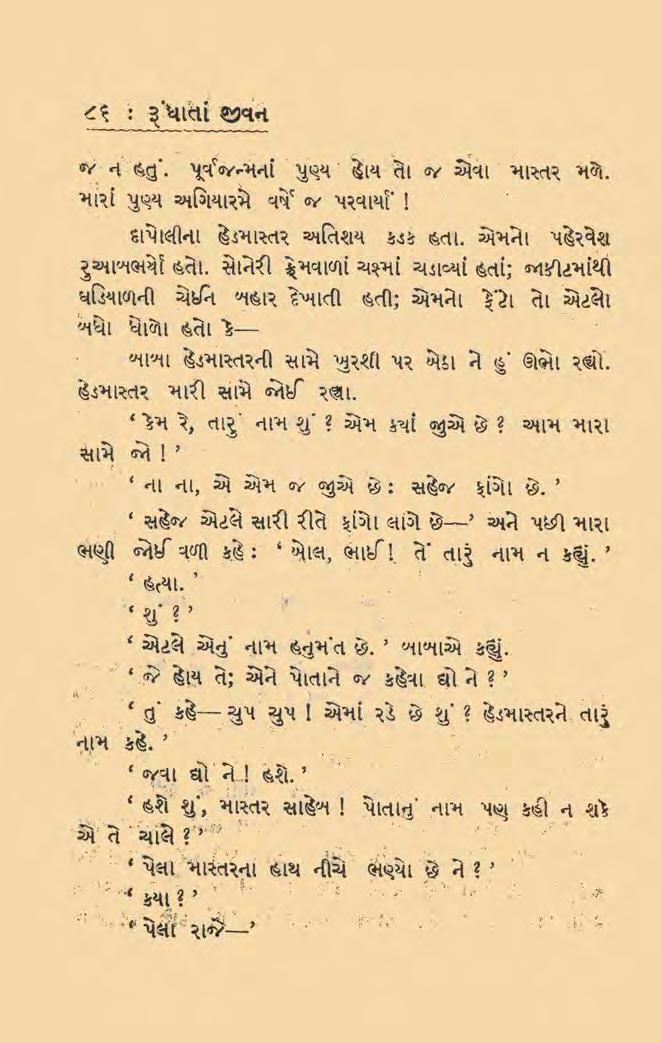 ૮૬ : રૂંધાતાં જીવન
જ ન હતું. પૂર્વજન્મનાં પુણ્ય હોય તો જ એવા માસ્તર મળે.
મારાં પુણ્ય અગિયારમે વર્ષે જ પરવાર્યાં !
દાપોલીના હેડમાસ્તર અતિશય કડક હતા. એમનો પહેરવેશ
રુઆબભર્યો હતો. સોનેરી ફ્રેમવાળાં ચશ્માં ચડાવ્યાં હતાં; જાકીટમાંથી
ઘડિયાળની ચેઈન બહાર દેખાતી હતી; એમનો ફેંટો તો એટલો
બધો ધોળો હતો કે—
બાબા હેડમાસ્તરની સામે ખુરશી પર બેઠા ને હું ઊભો રહ્યો.
હેડમાસ્તર મારી સામે જોઈ રહ્યા.
‘ કેમ રે, તારું નામ શું ? એમ કયાં જુએ છે ? આમ મારા
સામે જો ! ’
‘ ના ના, એ એમ જ જુએ છે : સહેજ ફાંગો છે. ’
‘ સહેજ એટલે સારી રીતે ફાંગો લાગે છે—’ અને પછી મારા
ભણી જોઈ વળી કહે : ‘ બોલ, ભાઈ ! તેં તારું નામ ન કહ્યું. ’
‘ હત્યા. ’
‘ શું ? ’
‘ એટલે એનું નામ હનુમંત છે. ’ બાબાએ કહ્યું.
‘ જે હોય તે; એને પોતાને જ કહેવા દ્યો ને ? ’
‘ તું કહે— ચુપ ચુપ ! એમાં રડે છે શું ? હેડમાસ્તરને તારું
નામ કહે. ’
‘ જવા દ્યો ને ! હશે. ’
‘ હશે શું, માસ્તર સાહેબ ! પોતાનું નામ પણ કહી ન શકે
એ તે ચાલે ? ’
‘ પેલા માસ્તરના હાથ નીચે ભણ્યો છે ને ? ’
‘ કયા ? ’
‘ પેલા રાજે—’